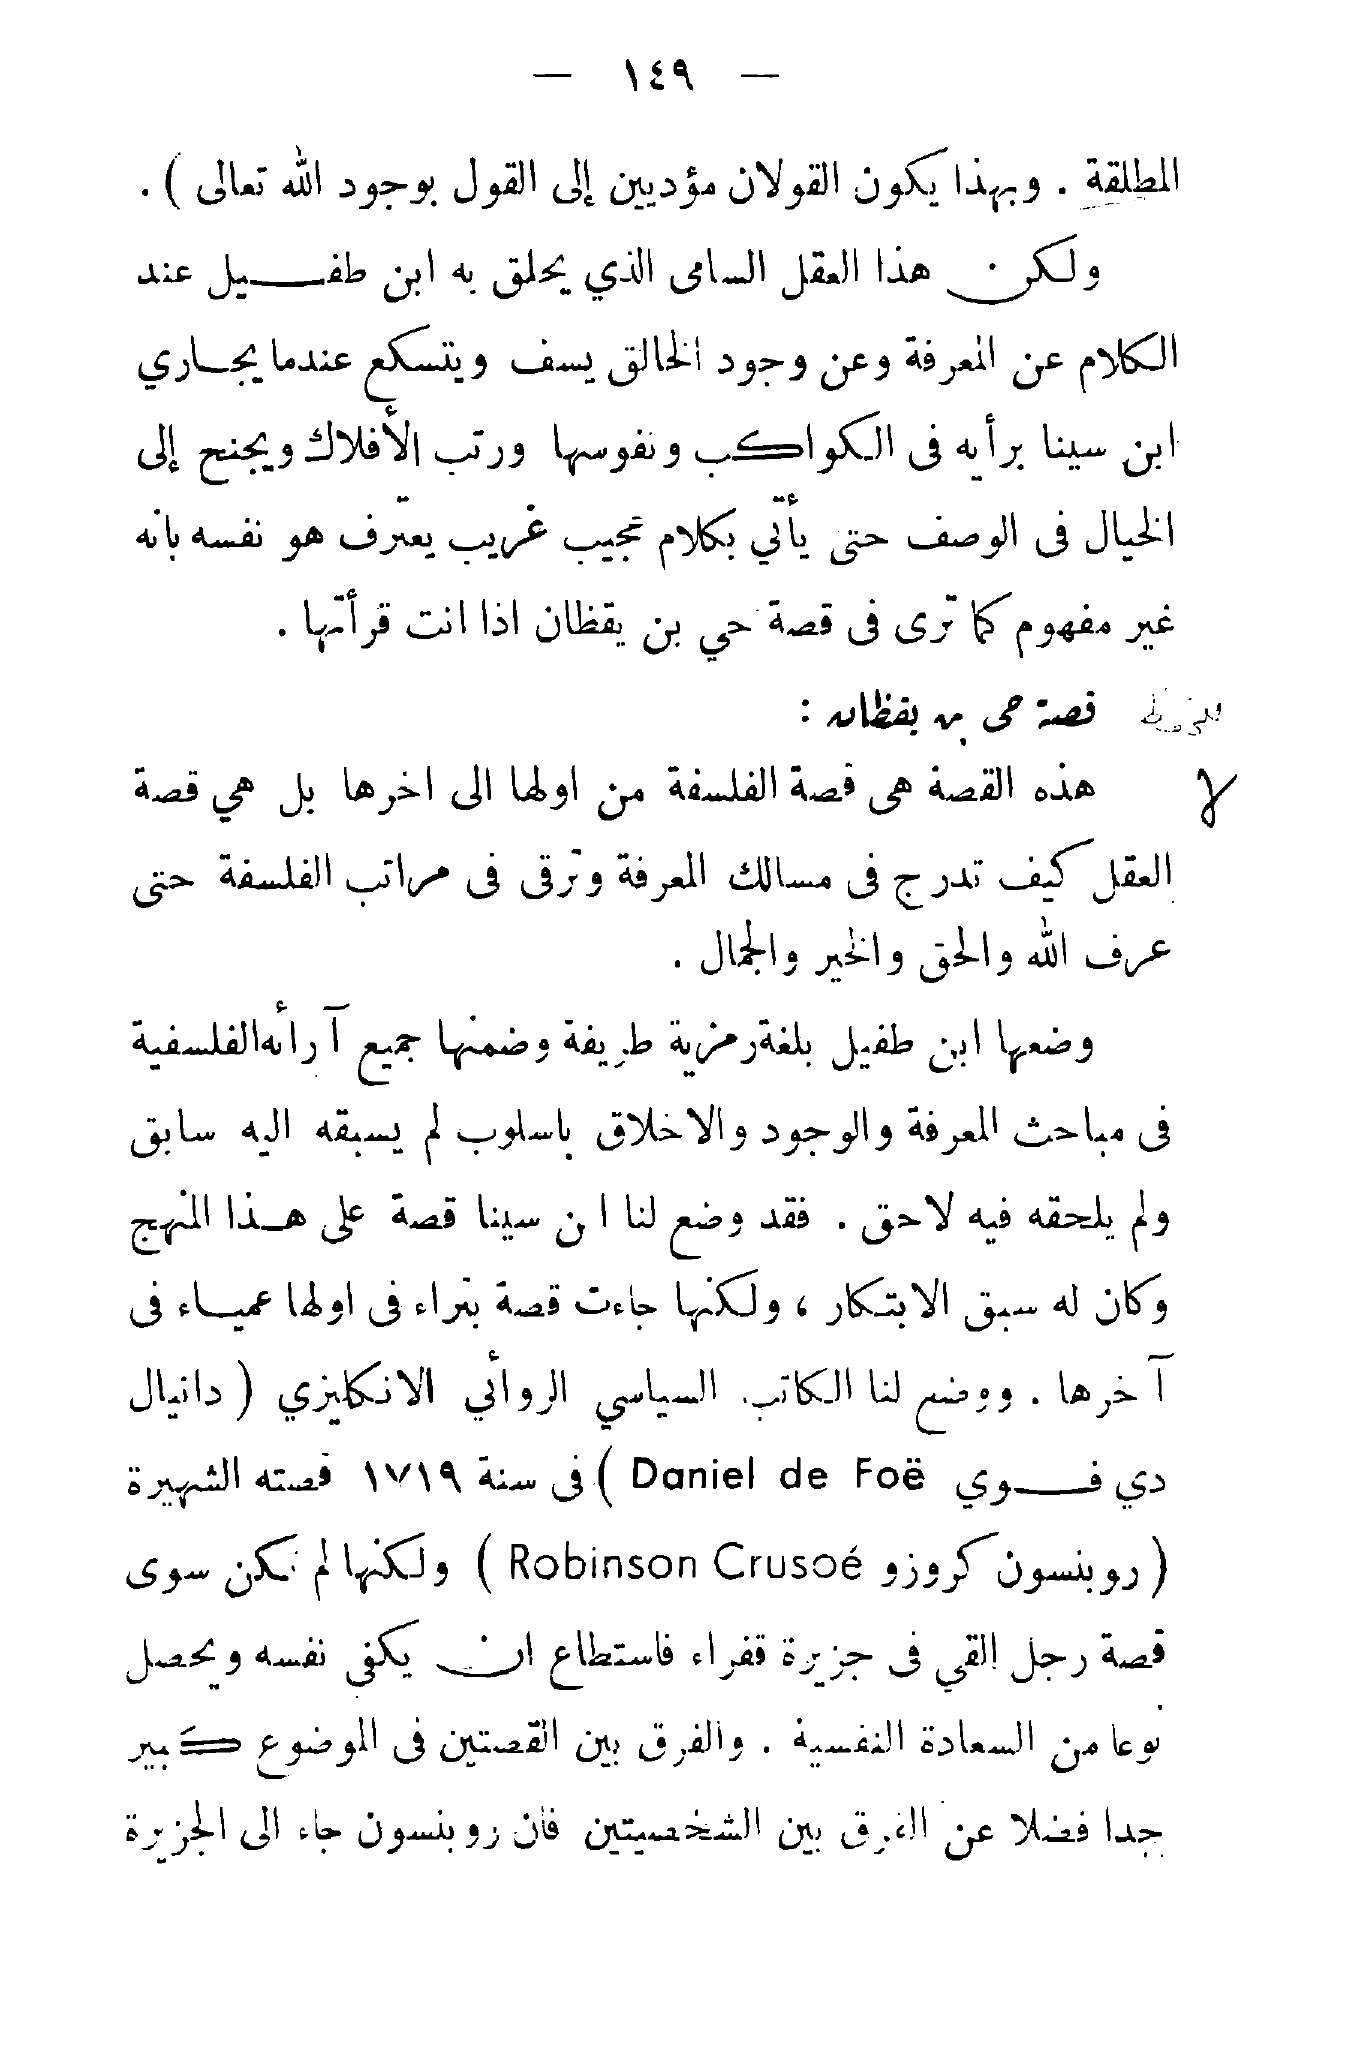 — ١٤٩ —
المطلقة . وبهذا يكون القولان مؤديين إلى القول بوجود الله تعالى ) .
ولكن هذا العقل السامى الذي يحلق به ابن طفيل عند
الكلام عن المعرفة وعن وجود الخالق يسف ويتسكع عندما يجاري
ابن سينا برأيه فى الكواكب ونفوسها ورتب الأفلاك ويجنح إلى
الخيال فى الوصف حتى يأتي بكلام عجيب غريب يعترف هو نفسه بانه
غير مفهوم كما ترى فى قصة حي بن يقظان اذا انت قرأتها .
قصة حى بن يقظان :
هذه القصة هى قصة الفلسفة من اولها الى اخرها بل هي قصة
العقل كيف تدرج فى مسالك المعرفة وترقى فى مراتب الفلسفة حتى
عرف الله والحق والخير والجمال .
وضعها ابن طفيل بلغة رمزية طريفة وضمنها جميع آرائه الفلسفية
فى مباحث المعرفة والوجود والاخلاق باسلوب لم يسبقه اليه سابق
ولم يلحقه فيه لاحق . فقد وضع لنا ابن سينا قصة على هذا المنهج
وكان له سبق الابتكار ، ولكنها جاءت قصة بتراء فى اولها عمياء فى
آخرها . ووضع لنا الكاتب السياسي الروأئي الانكليزي ( دانيال
دي فوي Daniel de Foë ) فى سنة ١٧١٩ قصته الشهيرة
( روبنسون كروزو Robinson Crusoé ) ولكنها لم تكن سوى
قصة رجل القي فى جزيرة قفراء فاستطاع ان يكفى نفسه ويحصل
نوعا من السعادة النفسية . والفرق بين القصتين فى الموضوع كبير
جدا فضلا عن الفرق بين الشخصيتين فان روبنسون جاء الى الجزيرة